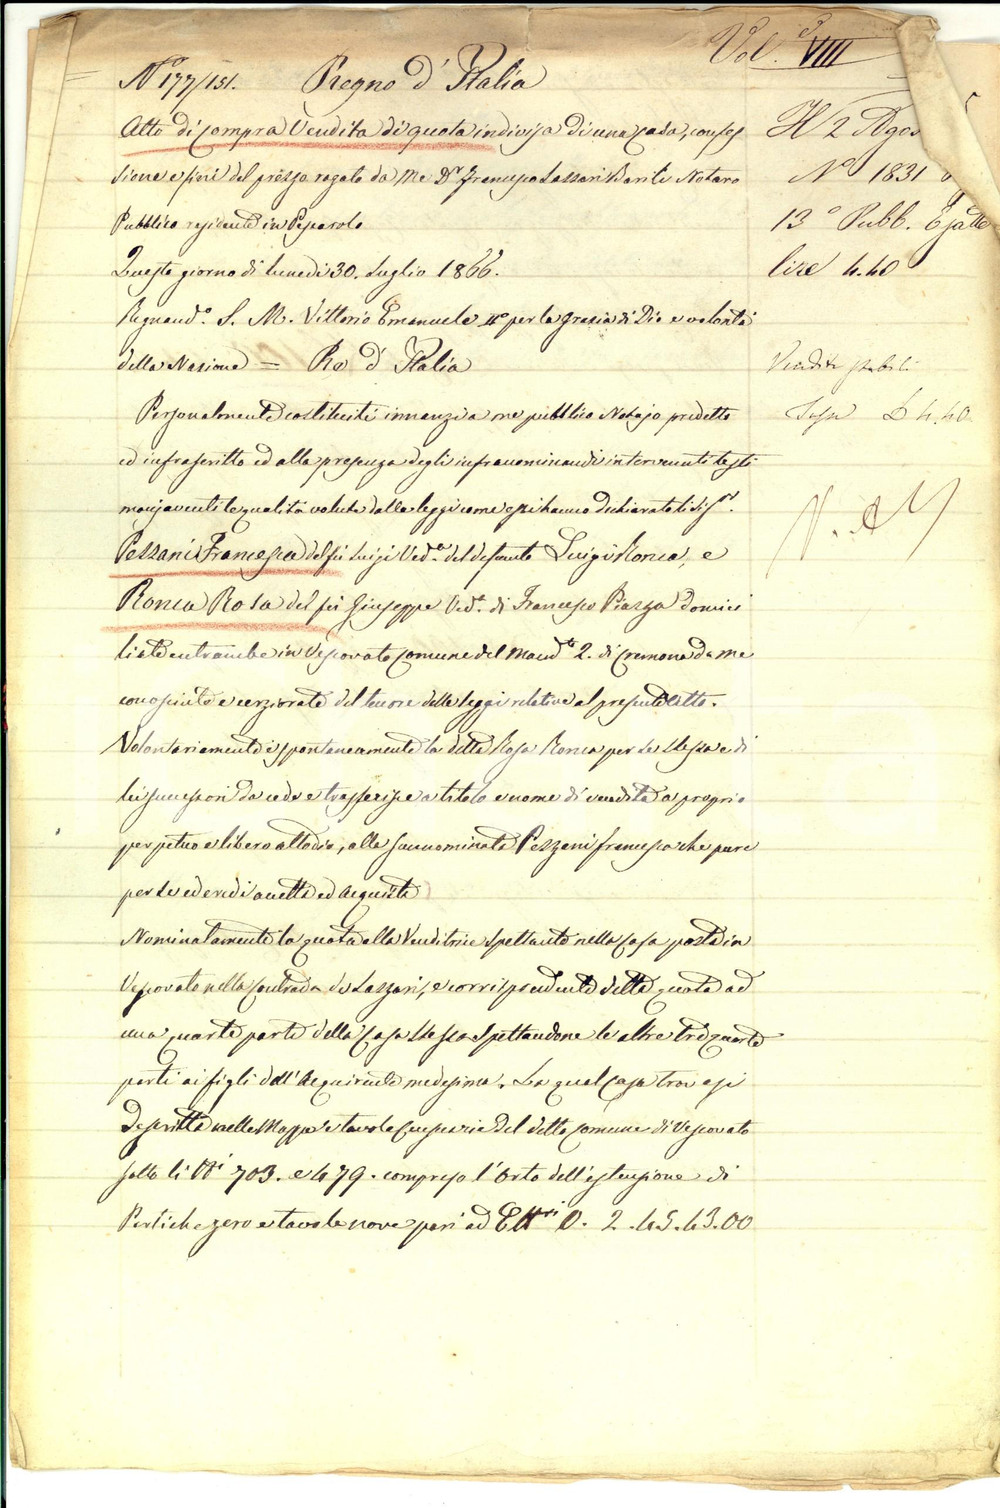 Vol.e VIII
N.o 177/151. Regno d'Italia
Atto di compra Vendita di quota indivisa di una casa, confes
sione e fini del prezzo rogato da Me Dr Francesco Lazzari Notaro
Pubblico residente in Pescarolo
Questo giorno di lunedi 30. Luglio 1866.
Regnando. S. M. Vittorio Emanuele II.o per la grazia di Dio e volontà
della Nazione = Re d'Italia
Personalmente costituiti innanzi a me pubblico Notajo predetto
ed infrascritto ed alla presenza degli infranominandi intervenuti testi
monj aventi le qualità volute dalla legge come essi hanno dichiarato li Sig.ri
Pezzani Francesca del fu Luigi Ved.a del defunto Luigi Ronca, e
Ronca Rosa del fu Giuseppe Ved.a di Francesco Piazza domici
liate entrambe in Vescovato Comune del Mand.to 2. di Cremona da me
conosciute e cerziorate del tenore delle leggi relative al presente Atto.
Volontariamente e spontaneamente la detta Rosa Ronca per se stessa e di
lei successori da cede e trasferisce a titolo e nome di vendita a proprio
perpetuo e libero allodio, alla sunnominata Pezzani Francesca che pure
per se ed eredi accetta ed acquista
Nominatamente la quota alla Venditrice spettante nella casa posta in
Vescovato nella Contrada de Lazzari, e corrispondente detta quota ad
una quarta parte della Casa stessa spettandone le altre tre quarte
parti ai figli dell'Acquirente medesima. La qual casa trovasi
descritta nelle Mappe e tavole Censuarie del detto Comune di Vescovato
sotto li N.i 703. e 479. compreso l'orto dell'estensione di
Pertiche zero e tavole nove pari ad Ettari 0. 2. 45. 43. 00
Li 2 Agos
N.o 1831
13.o Pubb. Esatte
lire 4.40
Vendite stabili
Tassa £ 4.40